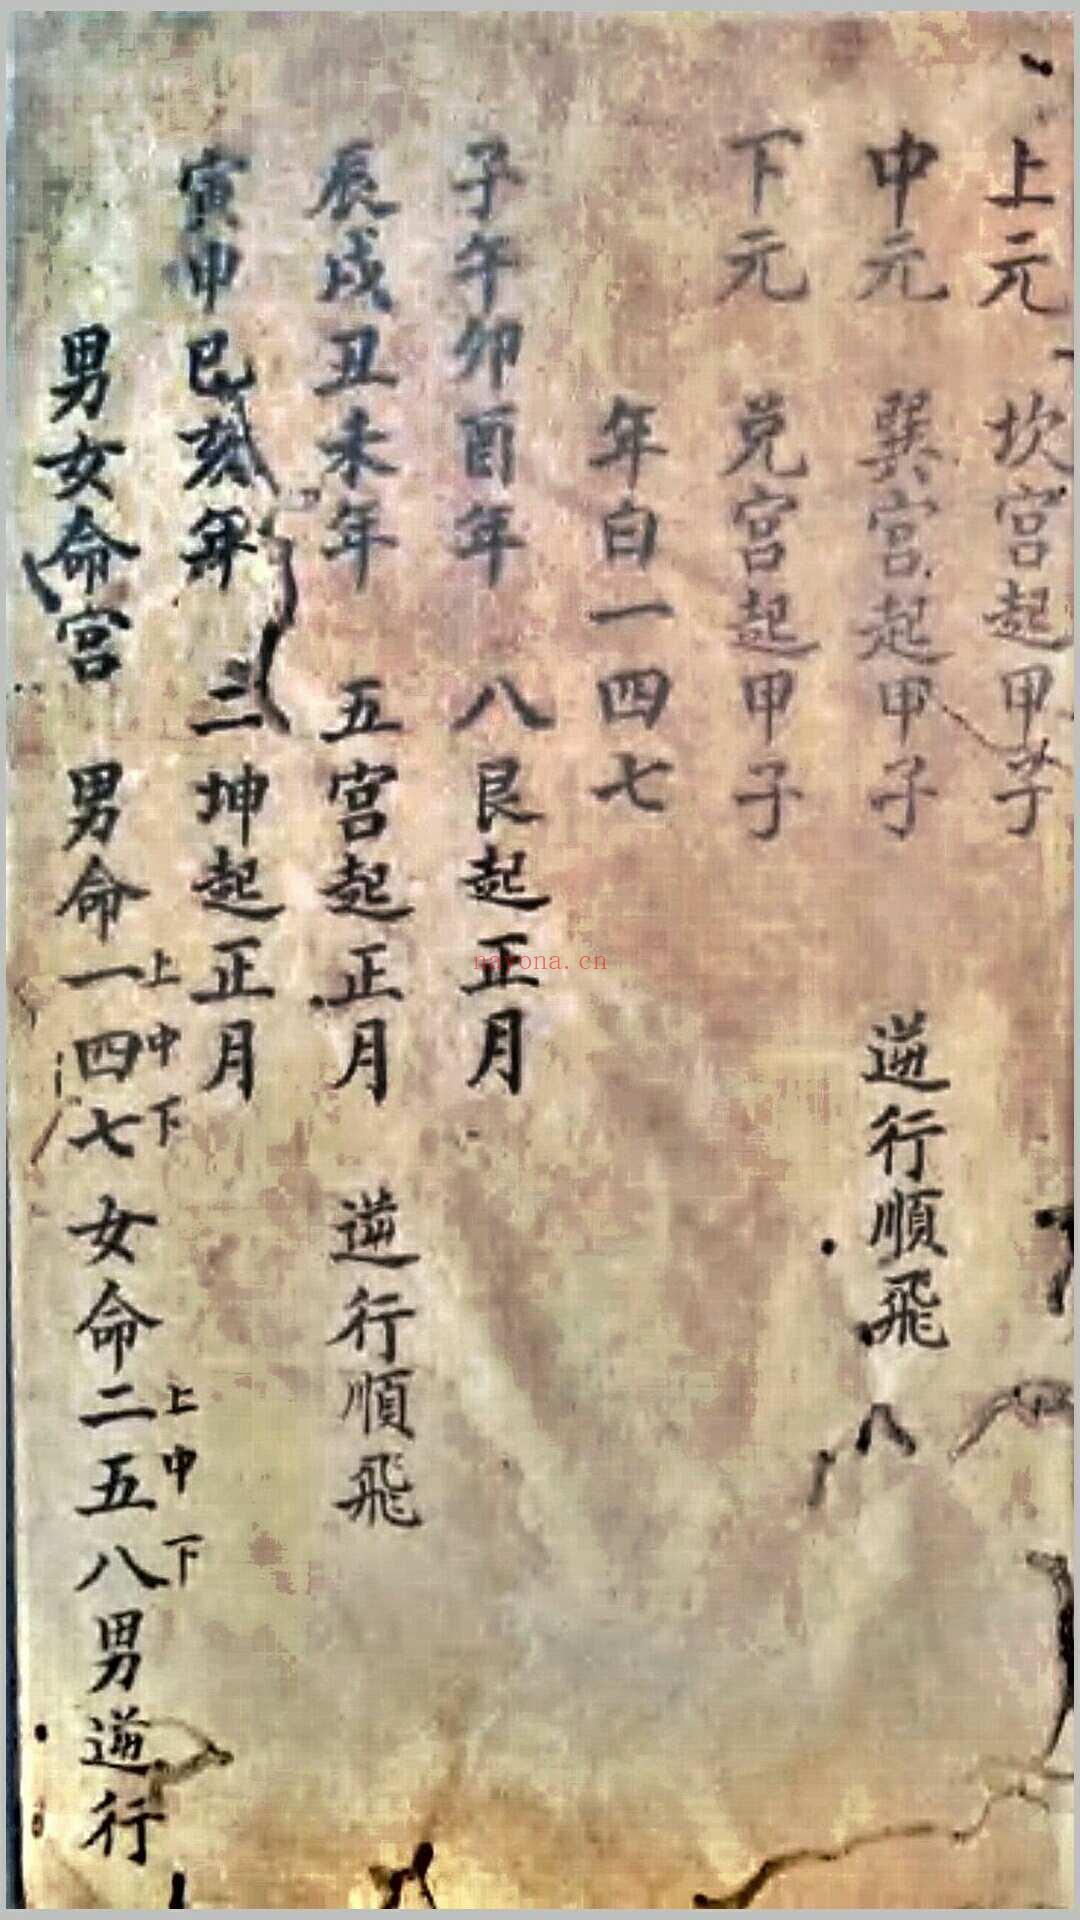 上元 坎宮起甲子
中元 巽宮起甲子 逆行順飛
下元 兌宮起甲子
年白一四七
子午卯酉年 八艮起正月
辰戌丑未年 五宮起正月 逆行順飛
寅申巳亥年 二坤起正月
男女命宮 男命一上四中七下女命二上五中八下男逆行
nayona.cn